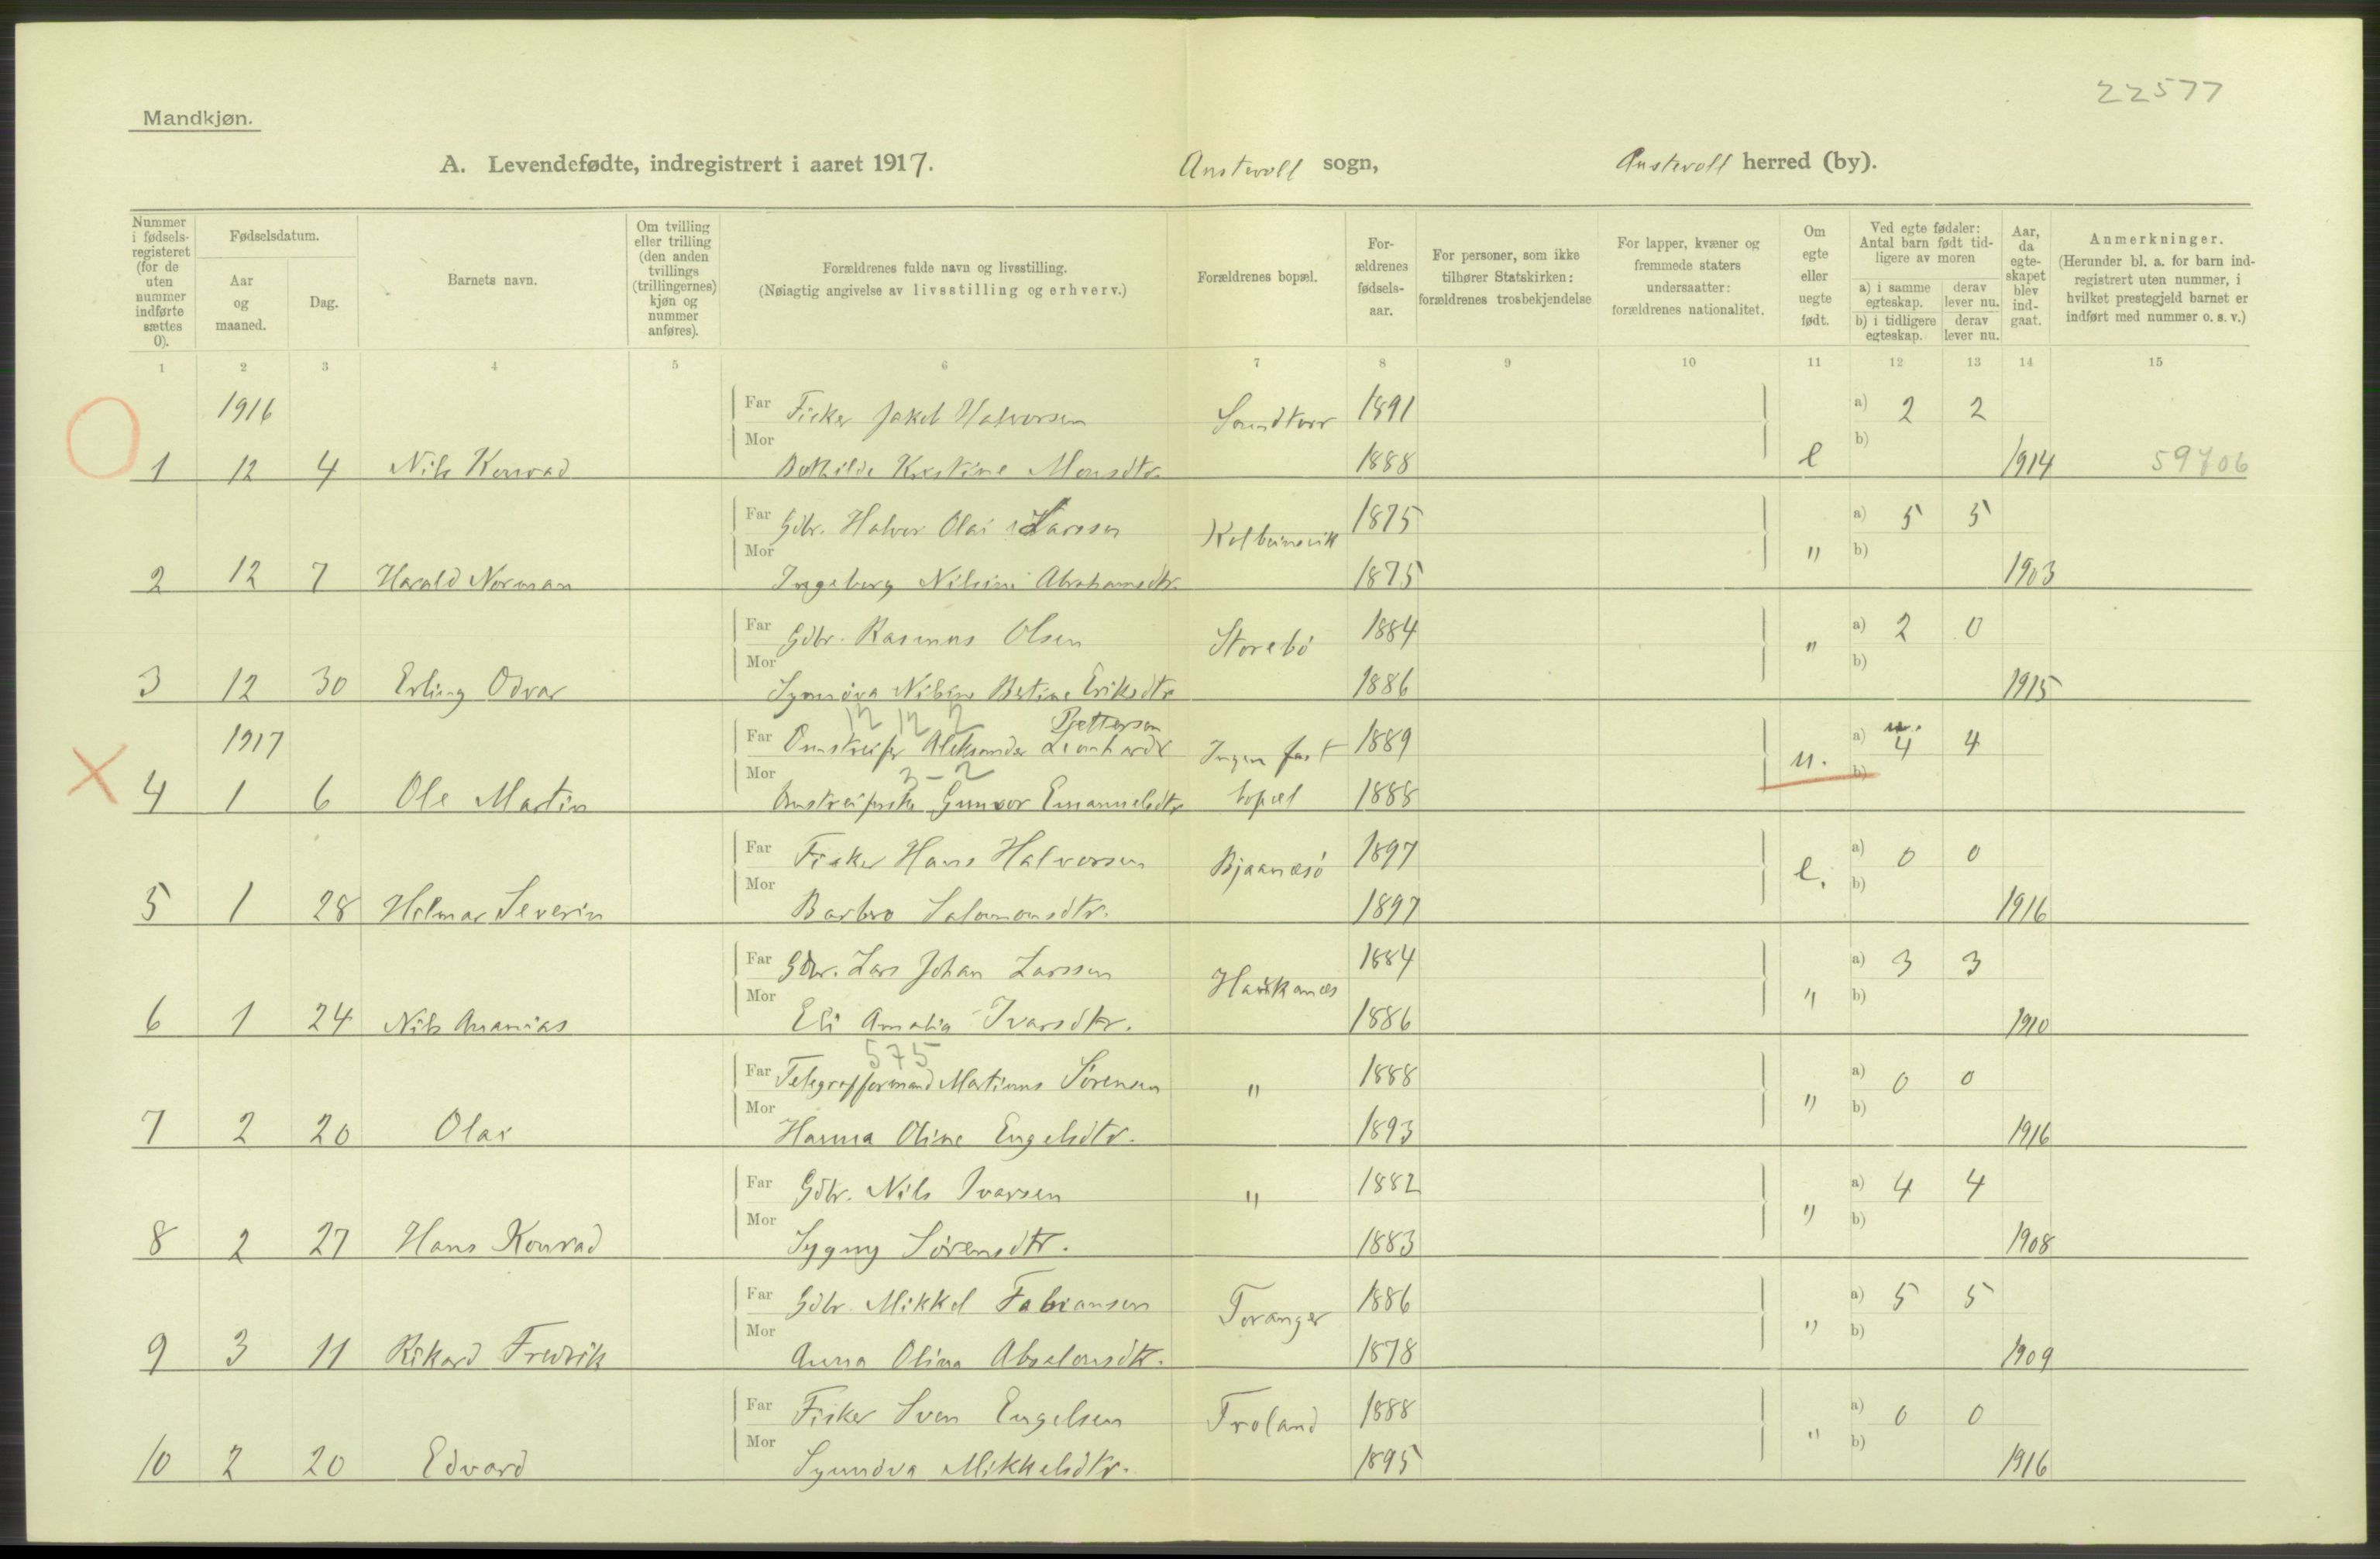 22577
Mandkjøn.
A. Levendefødte, indregistrert i aaret 1917. Austevoll sogn, Austevoll herred (by).
Nummer i fødsels-registeret (for de uten nummer indførte sættes 0).
Fødselsdatum.
Aar og maaned.
Dag.
Barnets navn.
Om tvilling eller trilling (den anden tvillings (trillingernes) kjøn og nummer anføres).
Forældrenes fulde navn og livsstilling.
(Nøiagtig angivelse av livsstilling og erhverv.)
Forældrenes bopæl.
For-ældrenes fødsels-aar.
For personer, som ikke tilhører Statskirken: forældrenes trosbekjendelse
For lapper, kvæner og fremmede staters undersaatter: forældrenes nationalitet.
Om egte eller uegte født.
Ved egte fødsler: Antal barn født tid-ligere av moren
a) i samme egteskap. derav lever nu.
b) i tidligere egteskap. derav lever nu.
Aar, da egte-skapet blev ind-gaat.
Anmerkninger.
(Herunder bl. a. for barn ind-registrert uten nummer, i hvilket prestegjeld barnet er indført med nummer o. s. v.)
1 2 3 4 5 6 7 8 9 10 11 12 13 14 15
1916 Far Fisker Jakob Halvorsen Sandtorv 1891 a) 2 2
1 12 4 Nils Konrad Mor Bothilde Kristine Monsdtr. 1888 e b) 1914 59706
Far Gdbr. Halvor Olai Larssen Kolbeinsvik 1875 a) 5 5
2 12 7 Harald Norman Mor Ingeborg Nilsine Abrahamsdtr. 1875 " b) 1903
Far Gdbr. Rasmus Olsen Storebö 1884 a) 2 0
3 12 30 Erling Odvar Mor Synnöva Nilsine Bertine Eriksdtr 1886 " b) 1915
12 12 2 Pettersen
1917 Far Omstreifer Aleksander Leonhard Ingen fast 1889 a) 4 4
3-2
4 1 6 Ole Martin Mor Omstreiferske Gunvor Emanuelsdtr bopæl 1888 u. b)
Far Fisker Hans Halvorsen Bjaanesö 1897 a) 0 0
5 1 28 Helmar Severin Mor Barbro Salamonsdtr. 1897 e. b) 1916
Far Gdbr. Lars Johan Larssen Haukanes 1884 a) 3 3
6 1 24 Nils Ananias Mor Eli Amalia Ivarsdtr. 1886 " b) 1910
575
Far Telegrafformand Martinus Sörensen " 1888 a) 0 0
7 2 20 Olai Mor Hanna Oline Engelsdtr. 1893 " b) 1916
Far Gdbr. Nils Ivarsen " 1882 a) 4 4
8 2 27 Hans Konrad Mor Sygny Sörensdtr. 1883 " b) 1908
Far Gdbr. Mikkel Fabiansen Toranger 1886 a) 5 5
9 3 11 Rikard Fredrik Mor Anna Olina Absalonsdtr. 1878 " b) 1909
Far Fisker Sven Engelsen Troland 1888 a) 0 0
10 2 20 Edvard Mor Synnöva Mikkelsdtr. 1895 " b) 1916